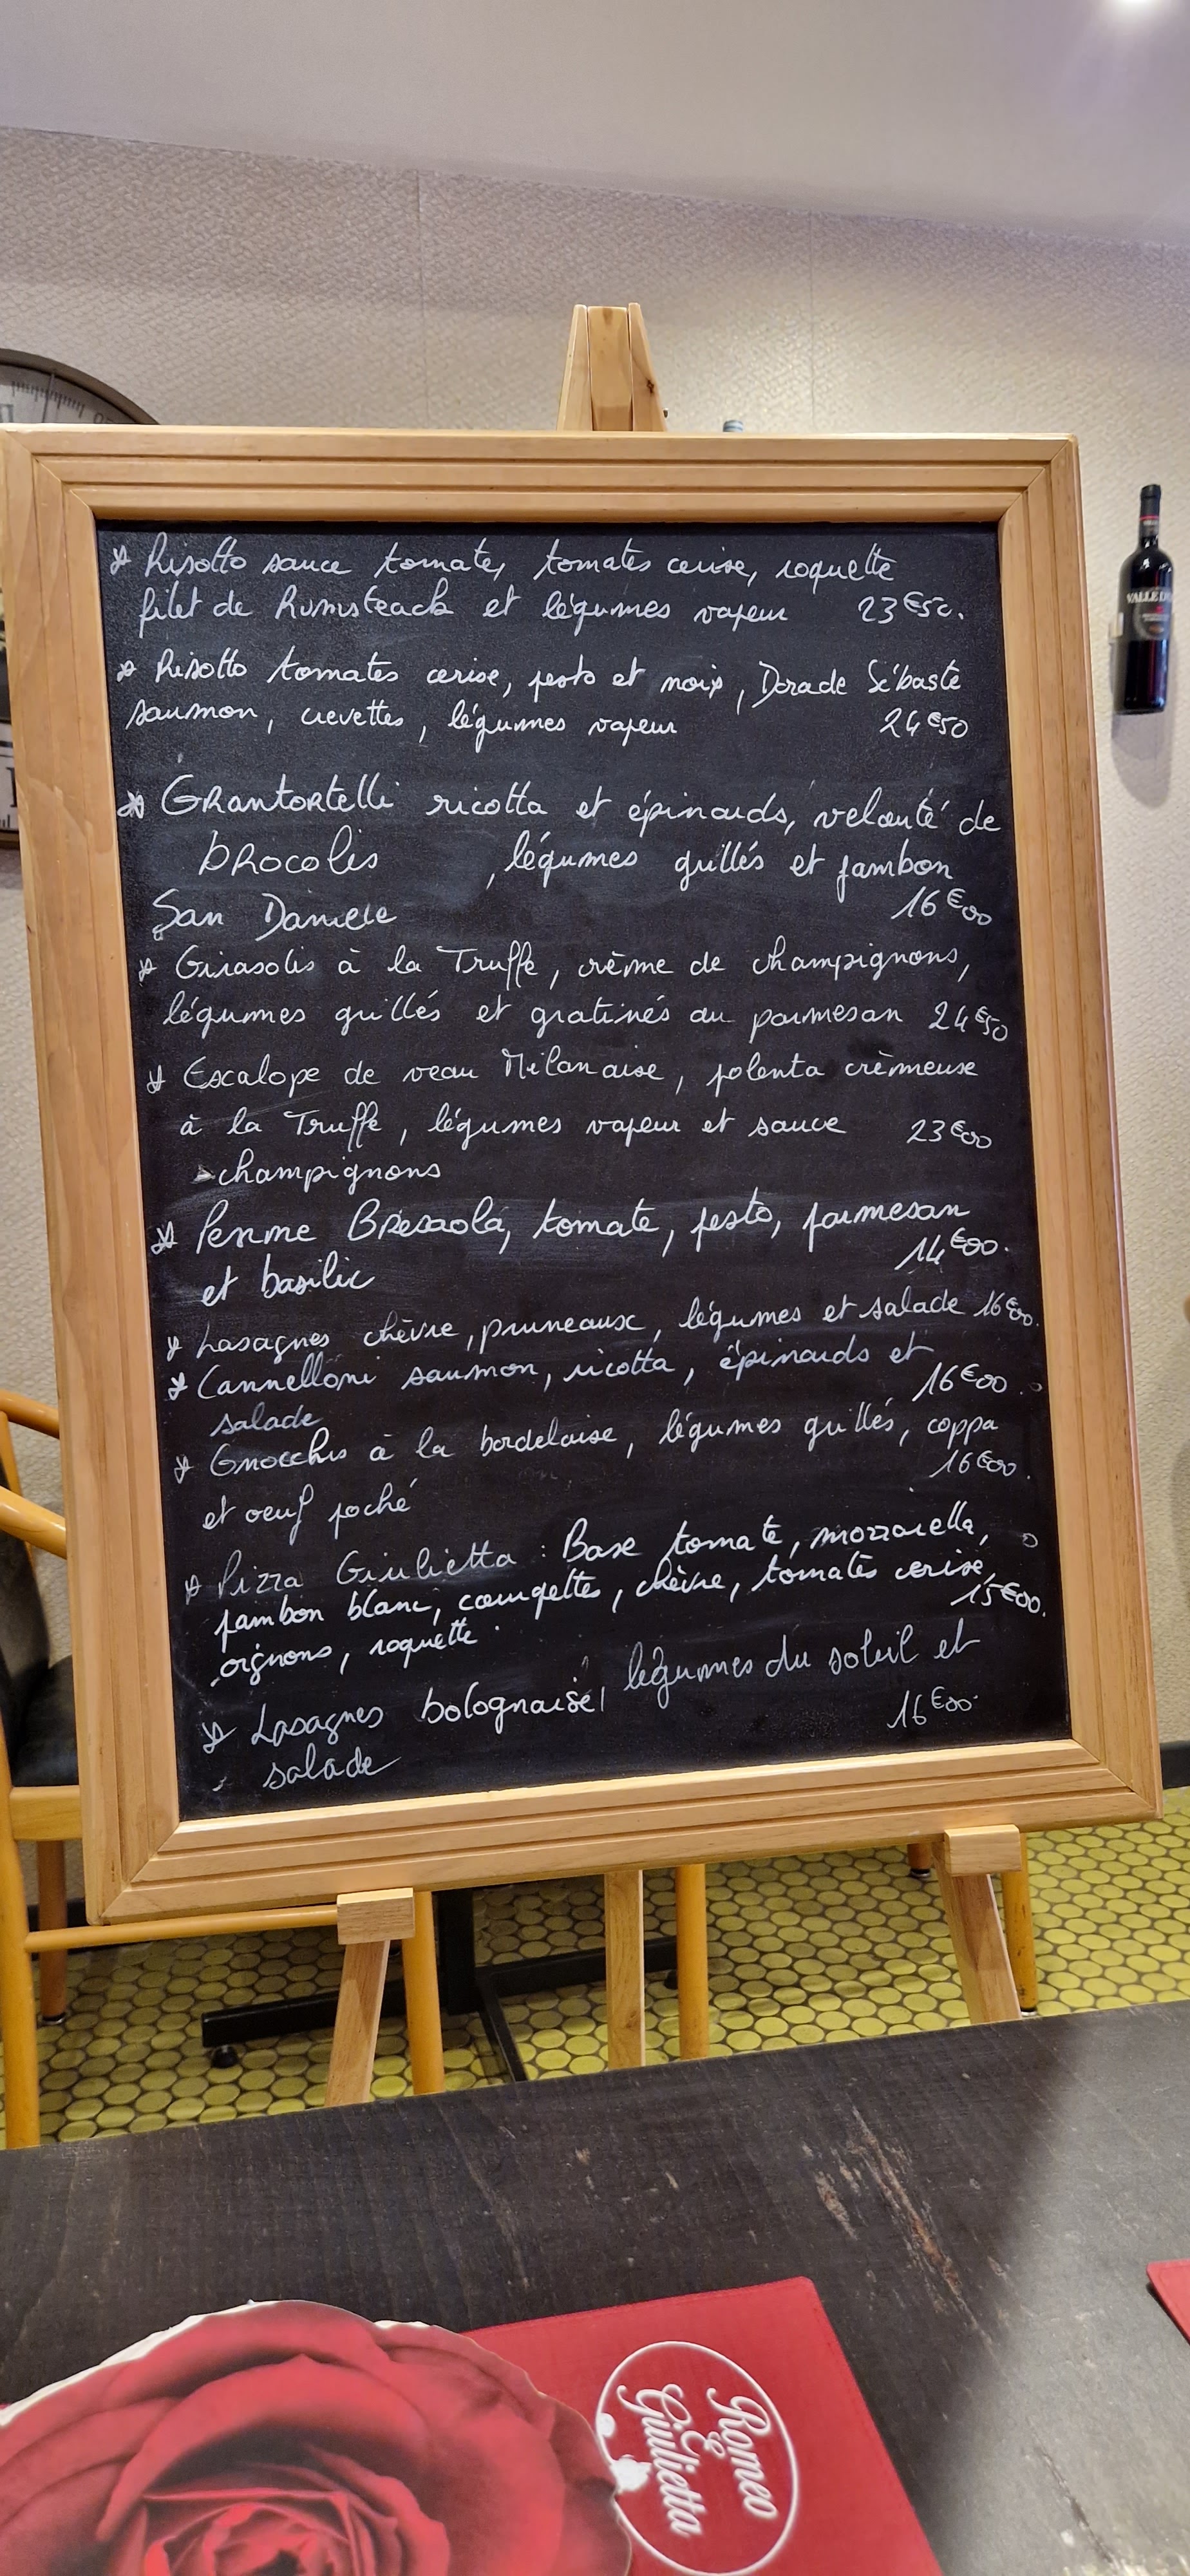 Risotto sauce tomate, tomates cerise, roquette
filet de Rumsteack et légumes vapeur 23€50.
Risotto tomates cerise, pesto et noix, Dorade Sébaste
saumon, crevettes, légumes vapeur 24€50
Grantortelli ricotta et épinards, velouté de
brocolis , légumes grillés et jambon
San Daniele 16€00
Girasolis à la Truffe, crème de champignons,
légumes grillés et gratinés au parmesan 24€50
Escalope de veau Milanaise, polenta crèmeuse
à la Truffe, légumes vapeur et sauce 23€00
champignons
Penne Bresaola, tomate, pesto, parmesan
et basilic 14€00.
Lasagnes chèvre, pruneaux, légumes et salade 16€00.
Cannelloni saumon, ricotta, épinards et
salade 16€00.
Gnocchis à la bordelaise, légumes grillés, coppa
et oeuf poché 16€00.
Pizza Giulietta : Base tomate, mozzarella,
jambon blanc, courgettes, chèvre, tomates cerise,
oignons, roquette. 15€00.
Lasagnes bolognaise, légumes du soleil et
salade 16€00.
VALLE D
Romeo
&
Giulietta